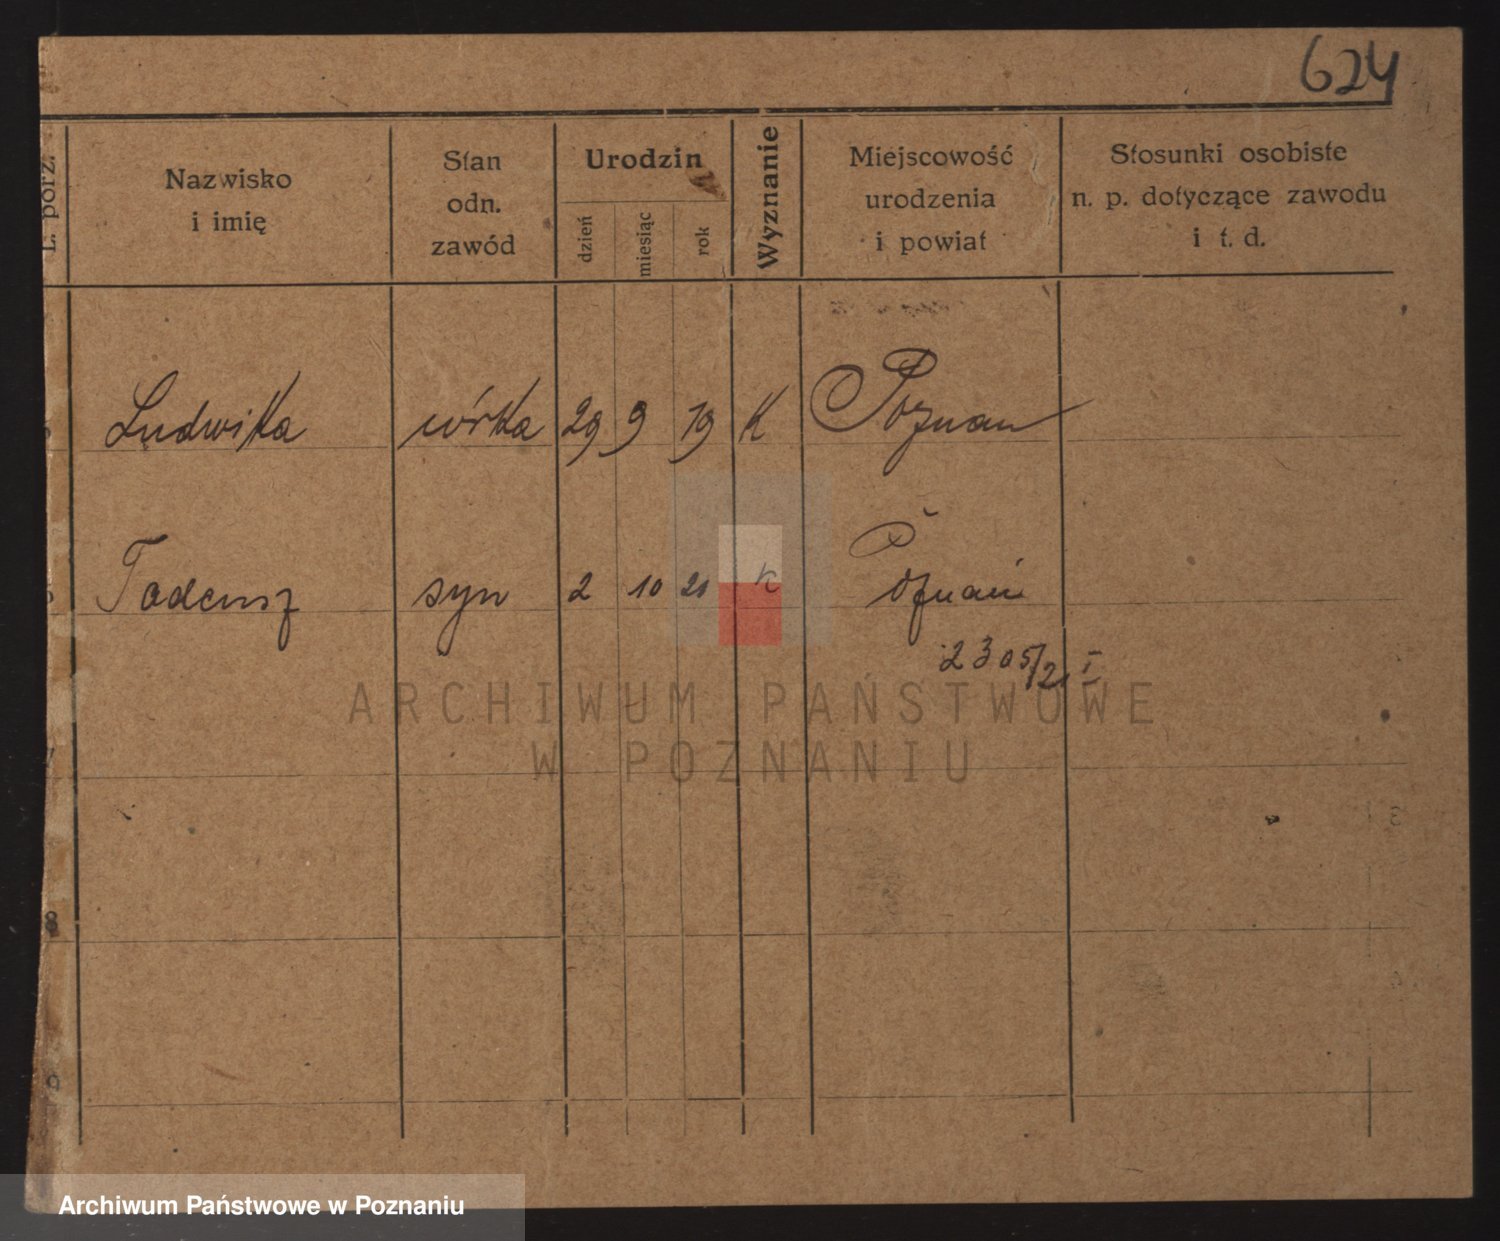 624
L. porz.
Nazwisko
i imię
Stan
odn.
zawód
Urodzin
dzień
miesiąc
rok
Wyznanie
Miejscowość
urodzenia
i powiat
Stosunki osobiste
n. p. dotyczące zawodu
i t. d.
Ludwika córka 29 9 19 K Poznań
Tadeusz syn 2 10 21 K Poznań
2305/2 I
ARCHIWUM PAŃSTWOWE
W POZNANIU
8
9
Archiwum Państwowe w Poznaniu